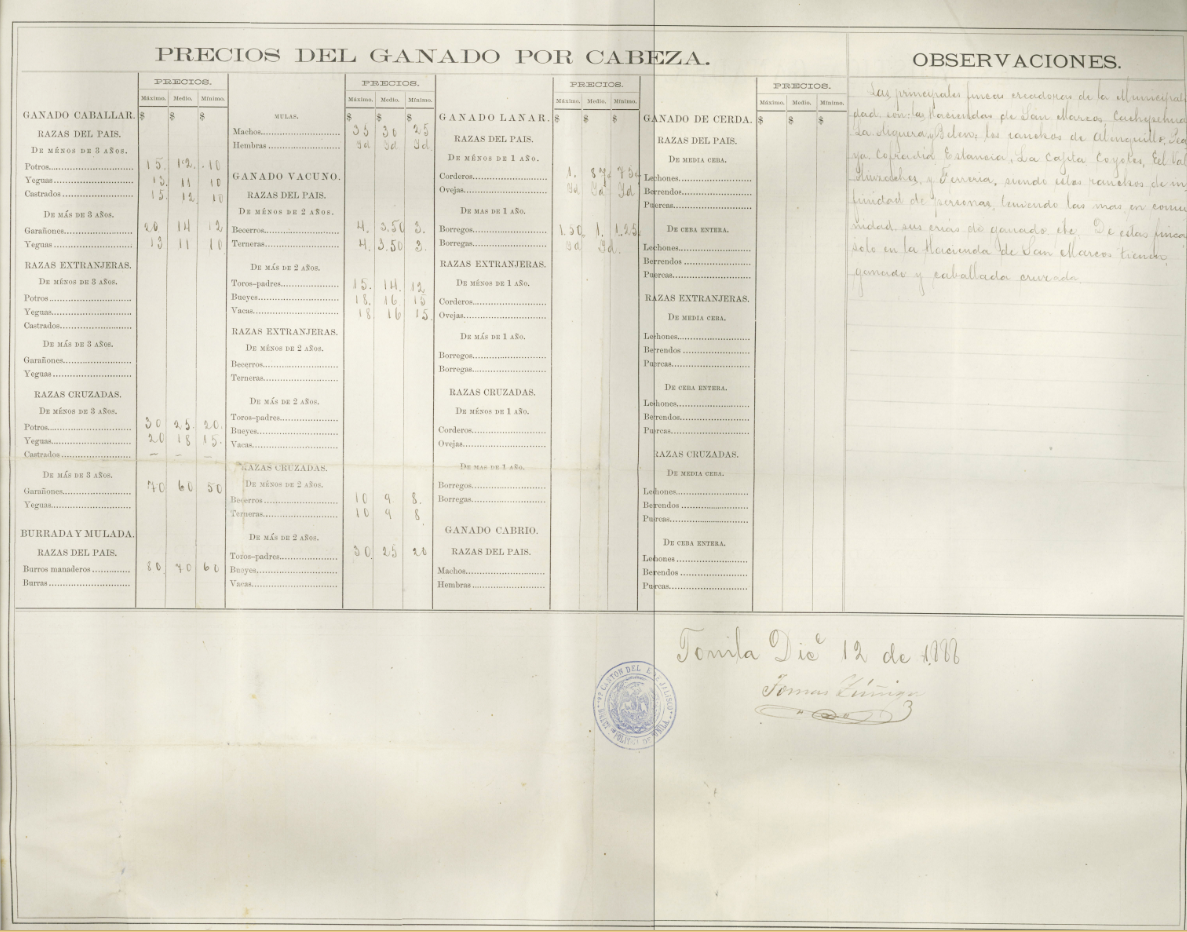 PRECIOS DEL GANADO POR CABEZA.
PRECIOS.
Máximo. Medio. Mínimo.
GANADO CABALLAR. $ $ $
RAZAS DEL PAIS.
DE MÉNOS DE 3 AÑOS.
Potros 15. 12. 10
Yeguas 13. 11 10
Castrados 15. 12. 10
DE MÁS DE 3 AÑOS.
Garañones 20 14 12
Yeguas 13 11 10
RAZAS EXTRANJERAS.
DE MÉNOS DE 3 AÑOS.
Potros
Yeguas
Castrados
DE MÁS DE 3 AÑOS.
Garañones
Yeguas
RAZAS CRUZADAS.
DE MÉNOS DE 3 AÑOS.
Potros 30 25. 20.
Yeguas 20 18 15.
Castrados — — —
DE MÁS DE 3 AÑOS.
Garañones 70 60 50
Yeguas
BURRADA Y MULADA.
RAZAS DEL PAIS.
Burros manaderos 80. 70 60
Burras
PRECIOS.
Máximo. Medio. Mínimo.
MULAS. $ $ $
Machos 35 30 25
Hembras Id. Id. Id.
GANADO VACUNO.
RAZAS DEL PAIS.
DE MÉNOS DE 2 AÑOS.
Becerros 4. 3.50 3.
Terneras 4. 3.50 3.
DE MÁS DE 2 AÑOS.
Toros-padres 15. 14. 12
Bueyes 18. 16 15
Vacas 18 16 15.
RAZAS EXTRANJERAS.
DE MÉNOS DE 2 AÑOS.
Becerros
Terneras
DE MÁS DE 2 AÑOS.
Toros-padres
Bueyes
Vacas
RAZAS CRUZADAS.
DE MÉNOS DE 2 AÑOS.
Becerros 10 9 8.
Terneras 10 9 8
DE MÁS DE 2 AÑOS.
Toros-padres 30. 25 20
Bueyes
Vacas
PRECIOS.
Máximo. Medio. Mínimo.
GANADO LANAR. $ $ $
RAZAS DEL PAIS.
DE MÉNOS DE 1 AÑO.
Corderos 1. 87½ 75
Ovejas Id Id Id
DE MAS DE 1 AÑO.
Borregos 1.50 1. 1.25
Borregas Id Id.
RAZAS EXTRANJERAS.
DE MÉNOS DE 1 AÑO.
Corderos
Ovejas
DE MÁS DE 1 AÑO.
Borregos
Borregas
RAZAS CRUZADAS.
DE MÉNOS DE 1 AÑO.
Corderos
Ovejas
DE MAS DE 1 AÑO.
Borregos
Borregas
GANADO CABRIO.
RAZAS DEL PAIS.
Machos
Hembras
PRECIOS.
Máximo. Medio. Mínimo.
GANADO DE CERDA. $ $ $
RAZAS DEL PAIS.
DE MEDIA CEBA.
Lechones
Berrendos
Puercas
DE CEBA ENTERA.
Lechones
Berrendos
Puercas
RAZAS EXTRANJERAS.
DE MEDIA CEBA.
Lechones
Berrendos
Puercas
DE CEBA ENTERA.
Lechones
Berrendos
Puercas
RAZAS CRUZADAS.
DE MEDIA CEBA.
Lechones
Berrendos
Puercas
DE CEBA ENTERA.
Lechones
Berrendos
Puercas
OBSERVACIONES.
Las principales fincas creadoras de la Municipali
dad son las Haciendas de San Marcos,
La Higuera y los ranchos de
Cofradia Estancia, La Cofita Coyotes, El
y siendo estos ranchos de in
finidad de personas, teniendo las mas en comu
nidad sus crias de ganado, etc. De estas fincas
solo en la Hacienda de San Marcos tienen
ganado y caballada cruzada.
Tonila Dice 12 de 1888
Tomas Zúñiga
CANTON DEL JALISCO